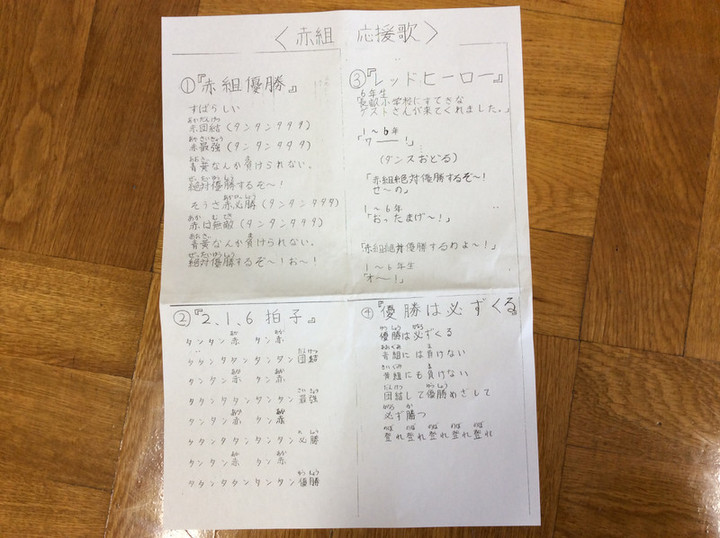 〈赤組 応援歌〉
①『赤組優勝』
すばらしい
赤団結(タンタンタタタ)
赤最強(タンタンタタタ)
青黄なんか負けられない。
絶対優勝するぞ〜!
そうさ赤必勝(タンタンタタタ)
赤は無敵(タンタンタタタ)
青黄なんか負けられない。
絶対優勝するぞ〜!お〜!
②『2、1、6拍子』
タンタン赤 タン赤
タタンタタンタンタン団結
タンタン赤 タン赤
タタンタタンタンタン最強
タンタン赤 タン赤
タタンタタンタンタン必勝
タンタン赤 タン赤
タタンタタンタンタン優勝
③『レッドヒーロー』
6年生
小学校にすてきな
ゲストさんが来てくれました。」
1〜6年
「ワー!」
(ダンスおどる)
「赤組絶対優勝するぞ〜!
せ〜の」
1〜6年
「おったまげ〜!」
「赤組絶対優勝するわよ〜!」
1〜6年生
「オ〜!」
④『優勝は必ずくる』
優勝は必ずくる
青組には負けない
黄組にも負けない
団結して優勝めざして
必ず勝つ
登れ登れ登れ登れ登れ